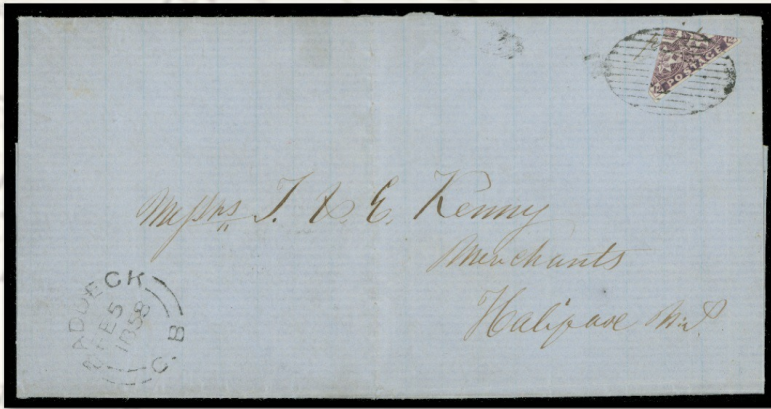 POSTAGE
Messrs T. & E. Kenny
Merchants
Halifax N.S.
ADDECK
FE5
1858
C.B